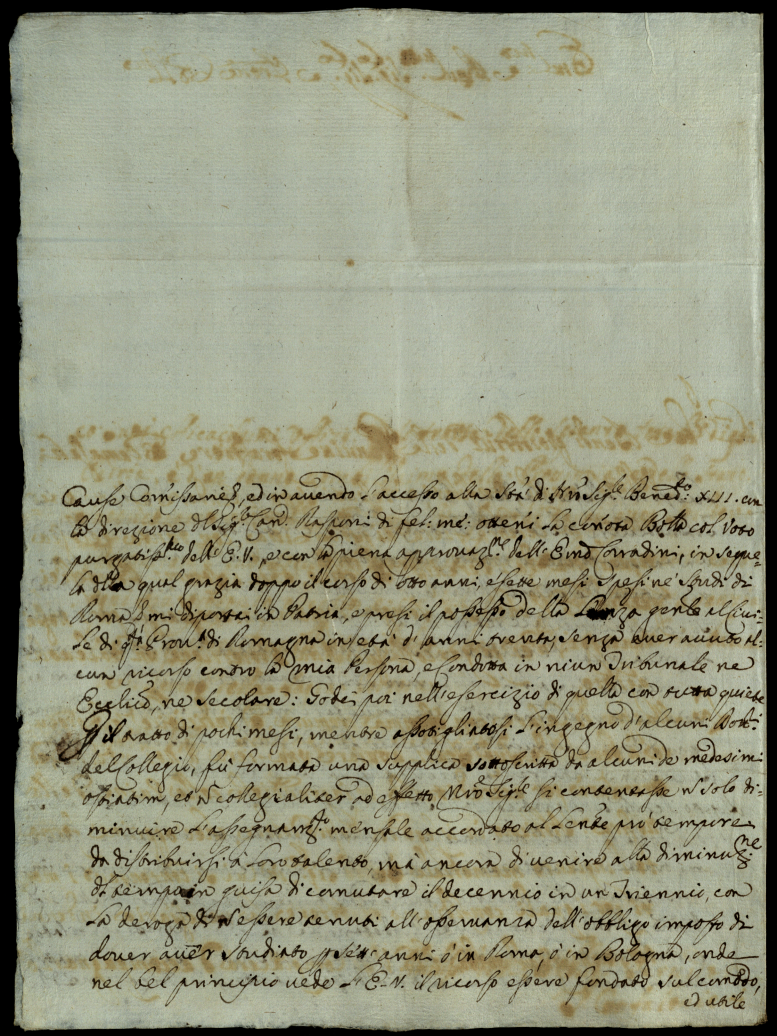 Cause Com̄issarieſ, ed in avendo l'accesso alla Stà di N̄ro Sigre Benedto: XIII. con
la direzione del Sigr Card. Rasponi di fel: me: ottenni la cōnota Bolla col Voto
purgatissmo dell'E.V., e con la piena approvazne dell'Emo Corradini, in seque-
la della qual grazia doppo il corso di otto anni, e sette mesi spesi ne Studi di
Roma mi diportai in Patria, e presi il possesso della gente al Civi-
le di qta Provª di Romagna in età d'anni trenta, senza aver avuto al-
cun ricorso contro la mia Persona, e Condotta in niun Tribunale ne
Ecclico, ne secolare: Godei poi nell'esercizio di quella con tutta quiete
ꝑ il tratto di pochi mesi, mentre assotigliatosi l'ingegno d'alcuni Dotti:
del Collegio, fù formata una supplica sottoscritta da alcuni de medesimi
ostiatim, et n̄ collegialiter ad effetto N̄ro Sigre si contentasse n̄ solo di-
minuire l'assegnamto: mensale accordato al pro tempore
da distribuirsi à loro talento, mà ancora di venire alla diminuzne:
di tempo in guisa di comutare il decennio in un Triennio, con
la deroga di n̄ essere tenuti all'osservanza dell'obbligo imposto di
dover aver studiato ꝑ sett'anni ò in Roma, ò in Bologna, onde
nel bel principio vede l'E.V. il ricorso essere fondato sul comodo,
ed utile